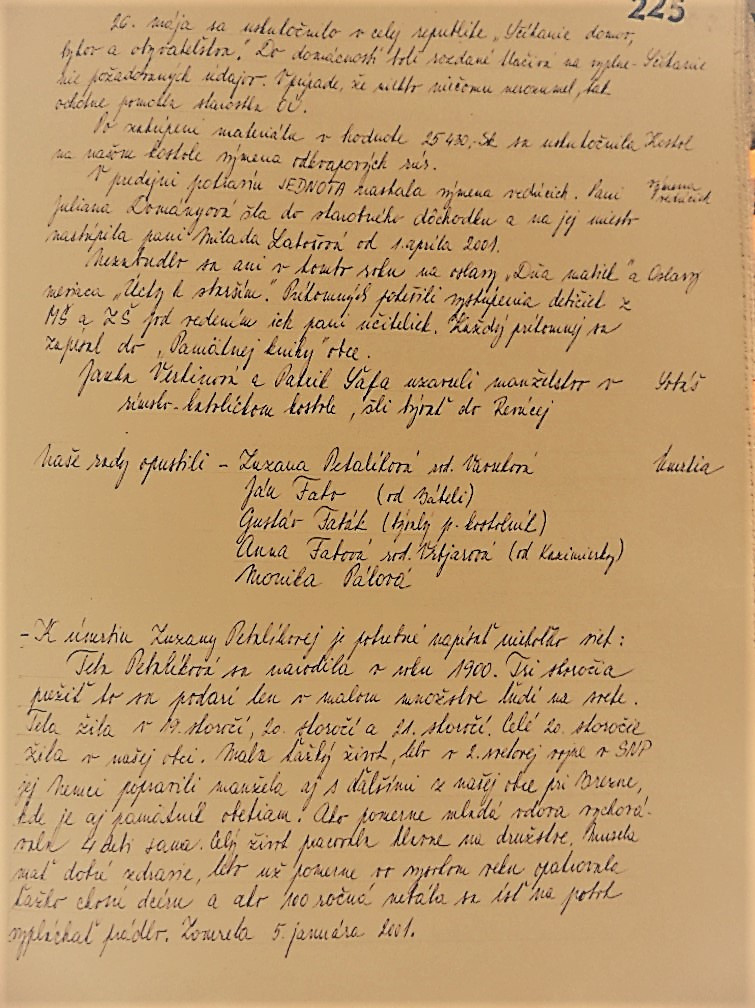 225
26. mája sa uskutočnilo v celej republike „Sčítanie domov,
bytov a obyvateľstva." Do domácností boli rozdané tlačivá na vyplne- Sčítanie
nie požadovaných údajov. V prípade, že niekto niečomu nerozumel, tak
ochotne pomohla starostka OÚ.
Po zakúpení materiálu v hodnote 25 430,-Sk sa uskutočnila Kostol
na našom kostole výmena odkvapových rúr.
V predajni potravín JEDNOTA nastala výmena vedúcich. Pani výmena vedúcich
Juliana Dományová šla do starobného dôchodku a na jej miesto
nastúpila pani Milada Latošová od 1. apríla 2001.
Nezabudlo sa ani v tomto roku na oslavy „Dňa matiek" a Oslavy
mesiaca „Úcty k starším". Prítomných potešili vystúpenia detičiek z
MŠ a ZŠ pod vedením ich pani učiteliek. Každý prítomný sa
zapísal do „Pamätnej knihy" obce.
Janka Vertinová a Patrik Šafa uzavreli manželstvo v Sobáš
rímsko-katolíckom kostole, šli bývať do Revúcej
Naše rady opustili - Zuzana Petalíková rod. Vavreková Úmrtia
Ján Fabo (od Báteli)
Gustáv Faták (bývalý p. kostolník)
Anna Fabová rod. Vrbjarová (od Kazimierky)
Monika Pálová
- K úmrtiu Zuzany Petalíkovej je potrebné napísať niekoľko viet:
Teta Petalíková sa narodila v roku 1900. Tri storočia
prežiť to sa podarí len v malom množstve ľudí na svete.
Teta žila v 19. storočí, 20. storočí a 21. storočí. Celé 20. storočie
žila v našej obci. Mala ťažký život, lebo v 2. svetovej vojne v SNP
jej Nemci popravili manžela aj s ďalšími z našej obce pri Brezne,
kde je aj pamätník obetiam. Ako pomerne mladá vdova vychová-
vala 4 deti sama. Celý život pracovala hlavne na družstve. Musela
mať dobré zdravie, lebo už pomerne vo vysokom veku opatrovala
ťažko chorú dcéru a ako 100 ročná nebála sa ísť na potok
vyplákať prádlo. Zomrela 5. januára 2001.